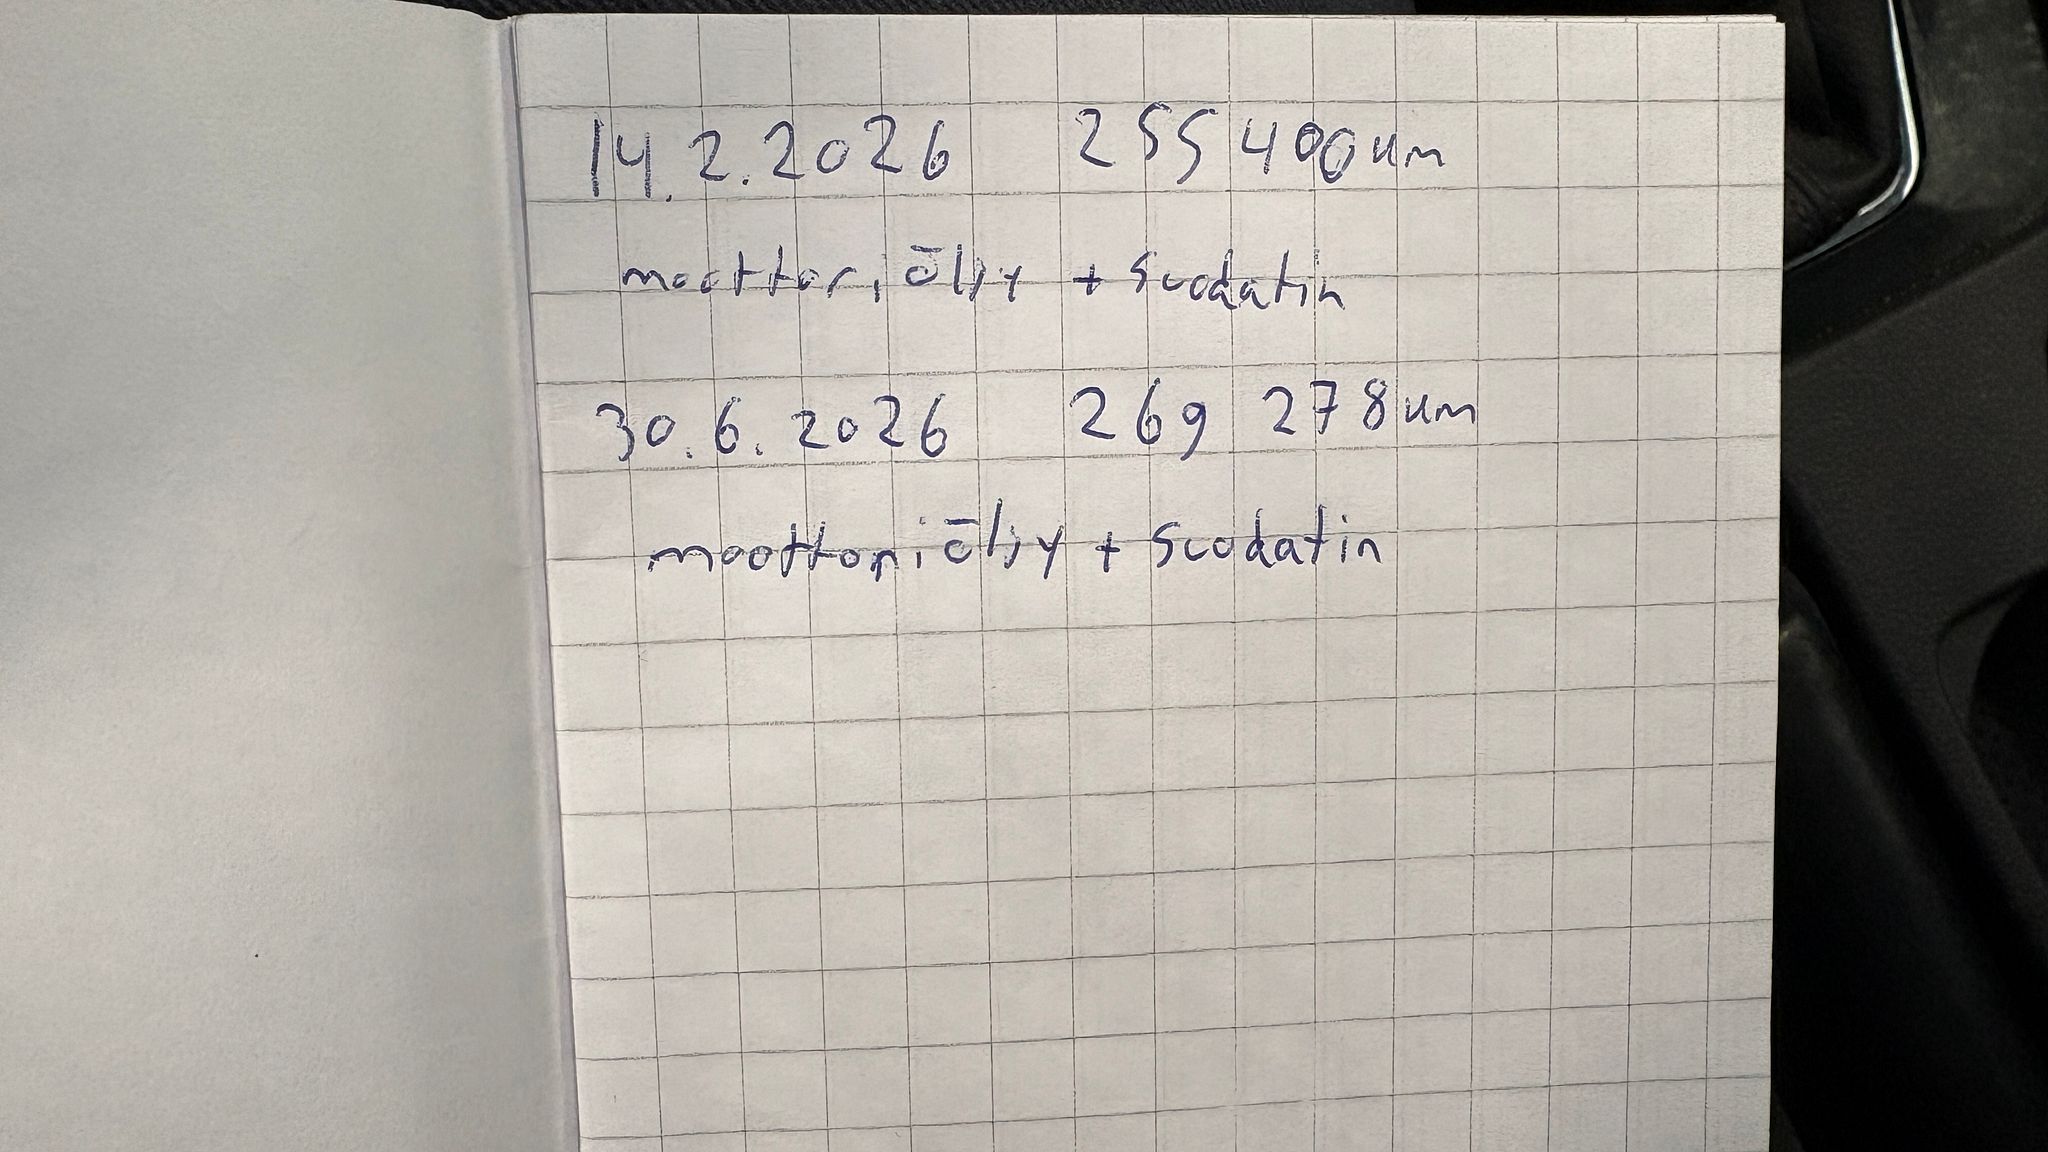 14.2.2026 255 400 km
moottoriöljy + suodatin
30.6.2026 269 278 km
moottoriöljy + suodatin